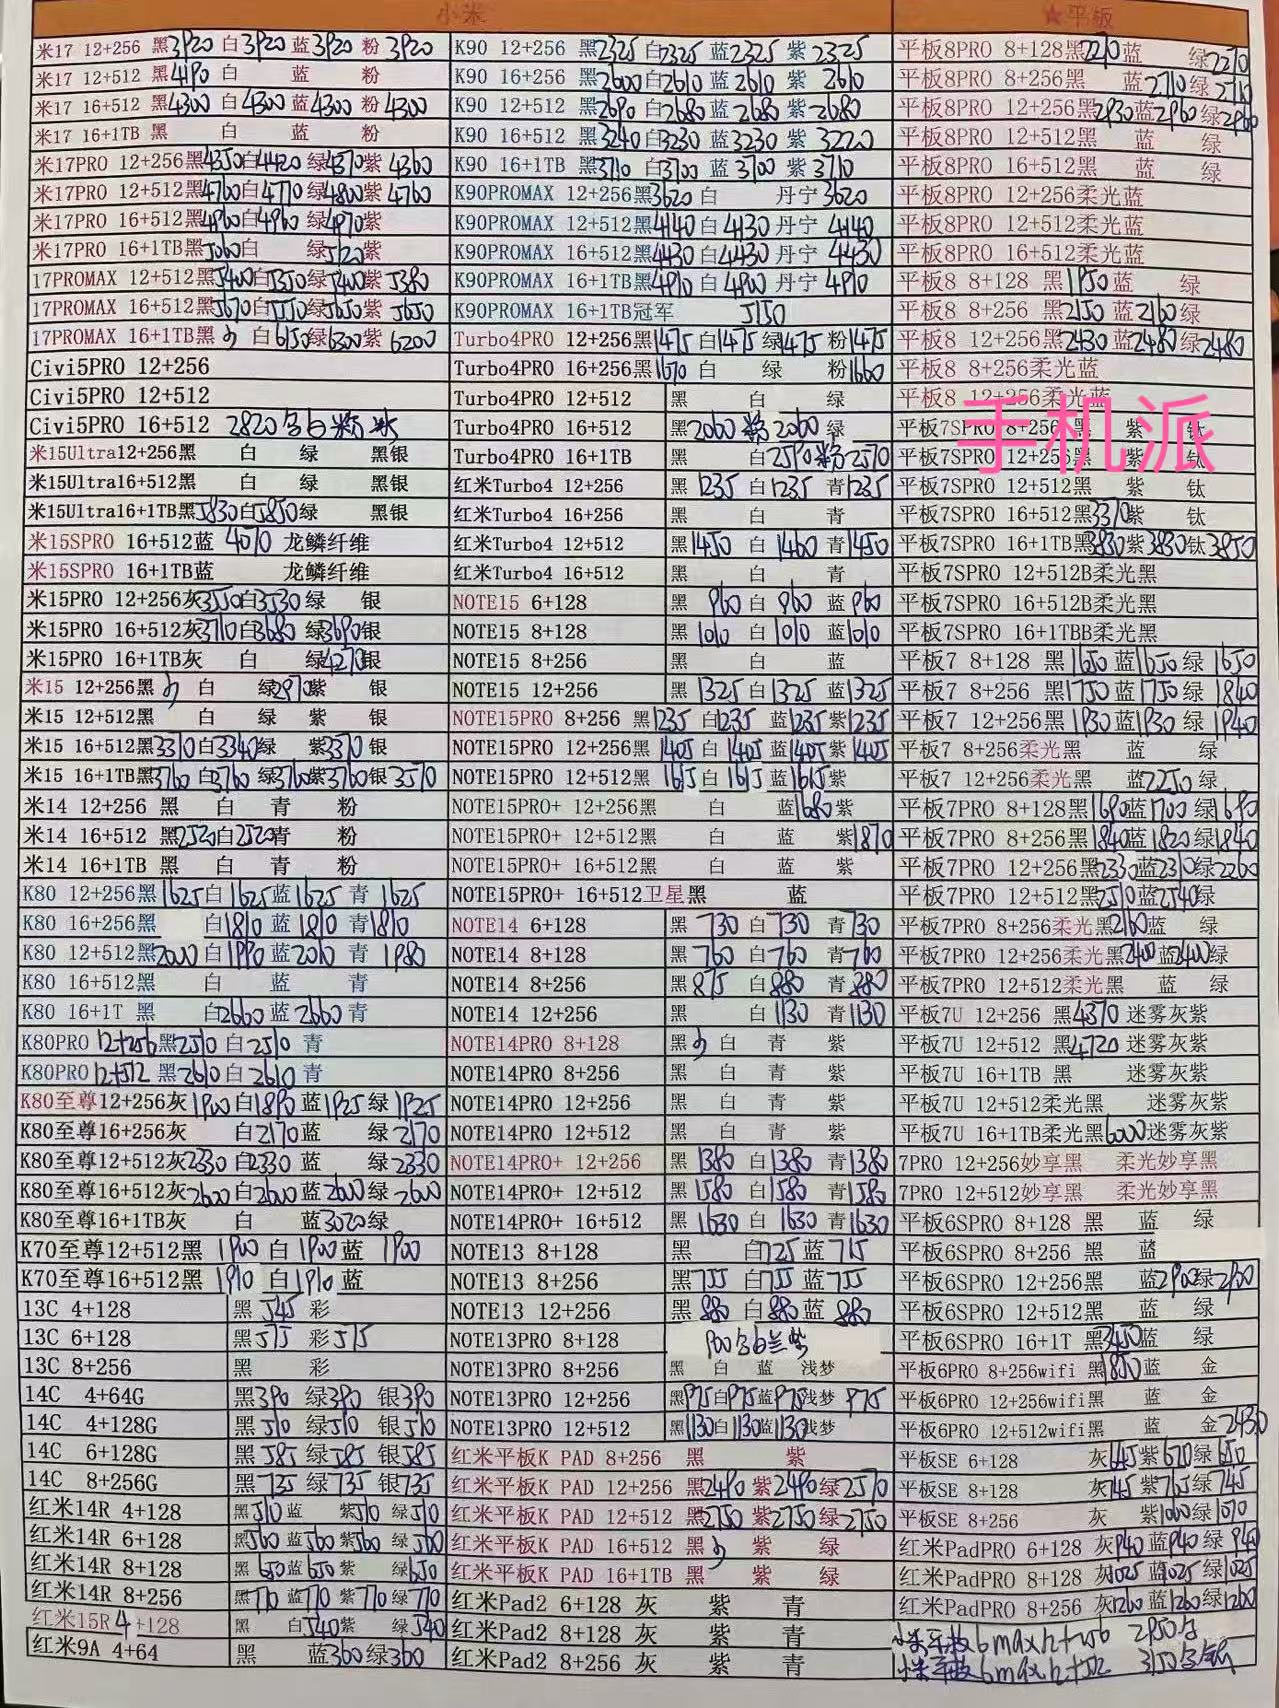 小米
米17 12+256 黑3920 白3920 蓝3920 粉 3920
米17 12+512 黑4190 白 蓝 粉
米17 16+512 黑4300 白4300 蓝4300 粉4300
米17 16+1TB 黑 白 蓝 粉
米17PRO 12+256黑4350白4420 绿4370紫 4360
米17PRO 12+512黑4760白4770绿4800紫 4760
米17PRO 16+512黑4960白4960 绿4970紫
米17PRO 16+1TB黑5060白 绿5120紫
17PROMAX 12+512黑5400白5350绿5400紫 5380
17PROMAX 16+512黑5670白 绿5650紫 5650
17PROMAX 16+1TB黑 白6150绿6300紫 6200
Civi5PRO 12+256
Civi5PRO 12+512
Civi5PRO 16+512 2820 白 粉 冰
米15Ultra12+256黑 白 绿 黑银
米15Ultra16+512黑 白 绿 黑银
米15Ultra16+1TB黑5830白5850绿 黑银
米15SPRO 16+512蓝 4070 龙鳞纤维
米15SPRO 16+1TB蓝 龙鳞纤维
米15PRO 12+256灰3550白3530 绿 银
米15PRO 16+512灰3710白3680 绿3690银
米15PRO 16+1TB灰 白 绿4270银
米15 12+256黑 白 绿2970紫 银
米15 12+512黑 白 绿 紫 银
米15 16+512黑3310白3340绿 紫3370 银
米15 16+1TB黑3760 白3760 绿3760紫3760银 3570
米14 12+256 黑 白 青 粉
米14 16+512 黑2520白2520青 粉
米14 16+1TB 黑 白 青 粉
K80 12+256黑 1625白 1625蓝1625 青 1625
K80 16+256黑 白1810 蓝 1810 青1810
K80 12+512黑2000 白1990 蓝2010 青 1980
K80 16+512黑 白 蓝 青
K80 16+1T 黑 白2660 蓝 2660青
K80PRO 12+256黑2510 白2510 青
K80PRO 12+512 黑2610白 2610 青
K80至尊12+256灰 1900 白1890 蓝1925 绿 1925
K80至尊16+256灰 白2170蓝 绿2170
K80至尊12+512灰2330 白2330 蓝 绿2330
K80至尊16+512灰2600 白2600 蓝2600绿 2600
K80至尊16+1TB灰 白 蓝3020绿
K70至尊12+512黑 1900 白 1900 蓝 1900
K70至尊16+512黑 1910 白1910 蓝
13C 4+128 黑 545 彩
13C 6+128 黑575 彩575
13C 8+256 黑 彩
14C 4+64G 黑390 绿390 银390
14C 4+128G 黑510 绿510 银510
14C 6+128G 黑585 绿585 银585
14C 8+256G 黑735 绿735 银735
红米14R 4+128 黑510蓝 紫510 绿510
红米14R 6+128 黑560 蓝560 紫560 绿560
红米14R 8+128 黑650蓝650紫 绿650
红米14R 8+256 黑710 蓝710 紫710 绿710
红米15R 4+128 黑 白540紫 绿540
红米9A 4+64 黑 蓝360绿360
K90 12+256 黑2325白2325 蓝2325 紫2325
K90 16+256 黑2600白2610 蓝2610 紫 2610
K90 12+512 黑2690 白2680 蓝2680 紫2680
K90 16+512 黑3240白3230 蓝3230 紫3220
K90 16+1TB 黑3710 白3700 蓝3700 紫3710
K90PROMAX 12+256黑3620白 丹宁3620
K90PROMAX 12+512黑4140白4130 丹宁 4140
K90PROMAX 16+512黑4430白4430 丹宁 4430
K90PROMAX 16+1TB黑4910白4900 丹宁 4910
K90PROMAX 16+1TB冠军 5150
Turbo4PRO 12+256黑1475白1475绿1475 粉1475
Turbo4PRO 16+256黑1670 白 绿 粉1660
Turbo4PRO 12+512 黑 白 绿
Turbo4PRO 16+512 黑2060 粉2060绿
Turbo4PRO 16+1TB 黑 白2590粉2570
红米Turbo4 12+256 黑 1235 白1235 青1235
红米Turbo4 16+256 黑 白 青
红米Turbo4 12+512 黑1450 白 1460青1450
红米Turbo4 16+512 黑 白 青
NOTE15 6+128 黑 960白 960 蓝960
NOTE15 8+128 黑 1010 白1010 蓝1010
NOTE15 8+256 黑 白 蓝
NOTE15 12+256 黑 1325白1325 蓝1325
NOTE15PRO 8+256 黑1235 白1235 蓝1235紫1235
NOTE15PRO 12+256黑1405白 1405蓝1405紫1405
NOTE15PRO 12+512黑 1615白 1615蓝1615紫
NOTE15PRO+ 12+256黑 白 蓝1680紫
NOTE15PRO+ 12+512黑 白 蓝 紫1870
NOTE15PRO+ 16+512黑 白 蓝 紫
NOTE15PRO+ 16+512卫星黑 蓝
NOTE14 6+128 黑 730 白730 青730
NOTE14 8+128 黑760 白760 青760
NOTE14 8+256 黑875 白880 青880
NOTE14 12+256 黑 白1130 青1130
NOTE14PRO 8+128 黑 白 青 紫
NOTE14PRO 8+256 黑 白 青 紫
NOTE14PRO 12+256 黑 白 青 紫
NOTE14PRO 12+512 黑 白 青 紫
NOTE14PRO+ 12+256 黑 1380 白1380 青1380
NOTE14PRO+ 12+512 黑 1580 白1580 青1580
NOTE14PRO+ 16+512 黑 1630 白 1630 青1630
NOTE13 8+128 黑 白725蓝715
NOTE13 8+256 黑755 白755 蓝755
NOTE13 12+256 黑 880 白880蓝 880
NOTE13PRO 8+128 900 白兰紫
NOTE13PRO 8+256 黑 白 蓝 浅梦
NOTE13PRO 12+256 黑975白975蓝975浅梦 975
NOTE13PRO 12+512 黑1130白1130蓝1130浅梦
红米平板K PAD 8+256 黑 紫
红米平板K PAD 12+256 黑2490 紫2490绿2570
红米平板K PAD 12+512 黑2750 紫2750绿2750
红米平板K PAD 16+512 黑 紫 绿
红米平板K PAD 16+1TB 黑 紫 绿
红米Pad2 6+128 灰 紫 青
红米Pad2 8+128 灰 紫 青
红米Pad2 8+256 灰 紫 青
★平板
平板8PRO 8+128黑2210蓝 绿2270
平板8PRO 8+256黑 蓝2710绿2710
平板8PRO 12+256黑2930蓝2960绿2960
平板8PRO 12+512黑 蓝 绿
平板8PRO 16+512黑 蓝 绿
平板8PRO 12+256柔光蓝
平板8PRO 12+512柔光蓝
平板8PRO 16+512柔光蓝
平板8 8+128 黑1950蓝 绿
平板8 8+256 黑2150 蓝2160绿
平板8 12+256 黑2430蓝2480绿2480
平板8 8+256柔光蓝
平板8 12+256柔光蓝
平板7SPRO 8+256黑 紫 钛
平板7SPRO 12+256黑 紫 钛
平板7SPRO 12+512黑 紫 钛
平板7SPRO 16+512黑3370紫 钛
平板7SPRO 16+1TB黑3830紫3830钛3850
平板7SPRO 12+512B柔光黑
平板7SPRO 16+512B柔光黑
平板7SPRO 16+1TBB柔光黑
平板7 8+128 黑1650蓝1650 绿 1650
平板7 8+256 黑1750 蓝1750 绿 1840
平板7 12+256黑1930蓝1930 绿 1940
平板7 8+256柔光黑 蓝 绿
平板7 12+256柔光黑 蓝2250 绿
平板7PRO 8+128黑1690蓝1700 绿1690
平板7PRO 8+256黑1840蓝1820绿1840
平板7PRO 12+256黑2330蓝2310绿2260
平板7PRO 12+512黑2510蓝2540绿
平板7PRO 8+256柔光黑2160蓝 绿
平板7PRO 12+256柔光黑2400蓝2400绿
平板7PRO 12+512柔光黑 蓝 绿
平板7U 12+256 黑4370 迷雾灰紫
平板7U 12+512 黑4720 迷雾灰紫
平板7U 16+1TB 黑 迷雾灰紫
平板7U 12+512柔光黑 迷雾灰紫
平板7U 16+1TB柔光黑6000迷雾灰紫
7PRO 12+256妙享黑 柔光妙享黑
7PRO 12+512妙享黑 柔光妙享黑
平板6SPRO 8+128 黑 蓝 绿
平板6SPRO 8+256 黑 蓝
平板6SPRO 12+256黑 蓝2900绿2900
平板6SPRO 12+512黑 蓝 绿
平板6SPRO 16+1T 黑3450蓝 绿
平板6PRO 8+256wifi 黑1850蓝 金
平板6PRO 12+256wifi黑 蓝 金
平板6PRO 12+512wifi黑 蓝 金2430
平板SE 6+128 灰645紫670绿650
平板SE 8+128 灰745紫765绿745
平板SE 8+256 灰 紫1000绿1010
红米PadPRO 6+128 灰940 蓝940 绿 940
红米PadPRO 8+128 灰1025 蓝1025 绿1025
红米PadPRO 8+256 灰1260 蓝1260 绿1260
小米平板6max12+256 2950
小米平板6max12+512 3150
手机派